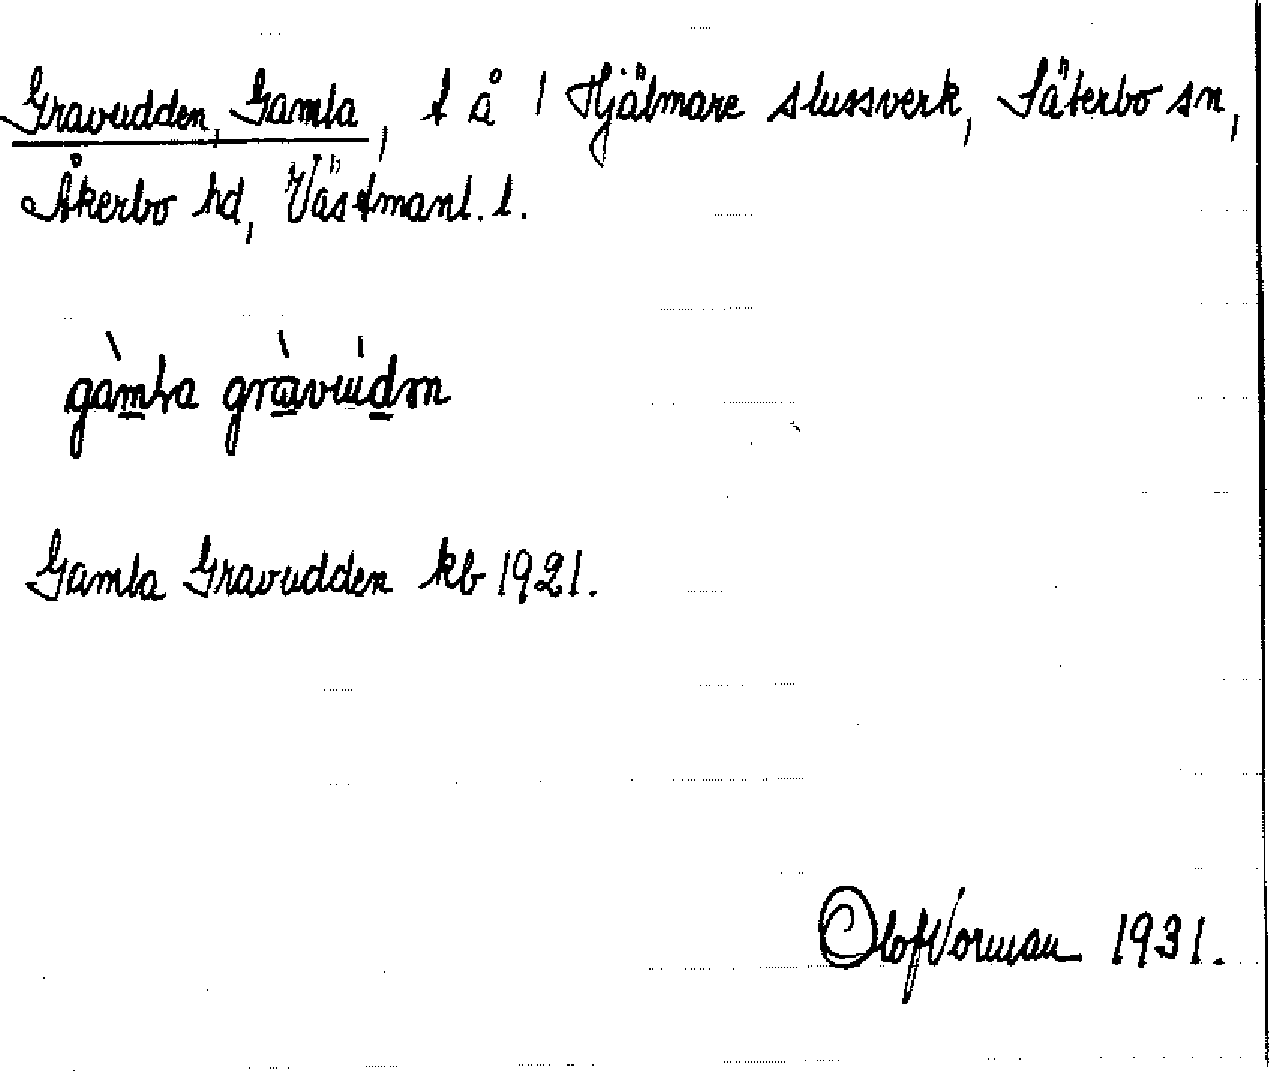 Gravudden, Gamla, t å 1 Hjälmare slussverk, Säterbo sn,
Åkerbo hd, Västmanl. l.
gàmla gràvúdn
Gamla Gravudden kb 1921.
Olof Vorman 1931.